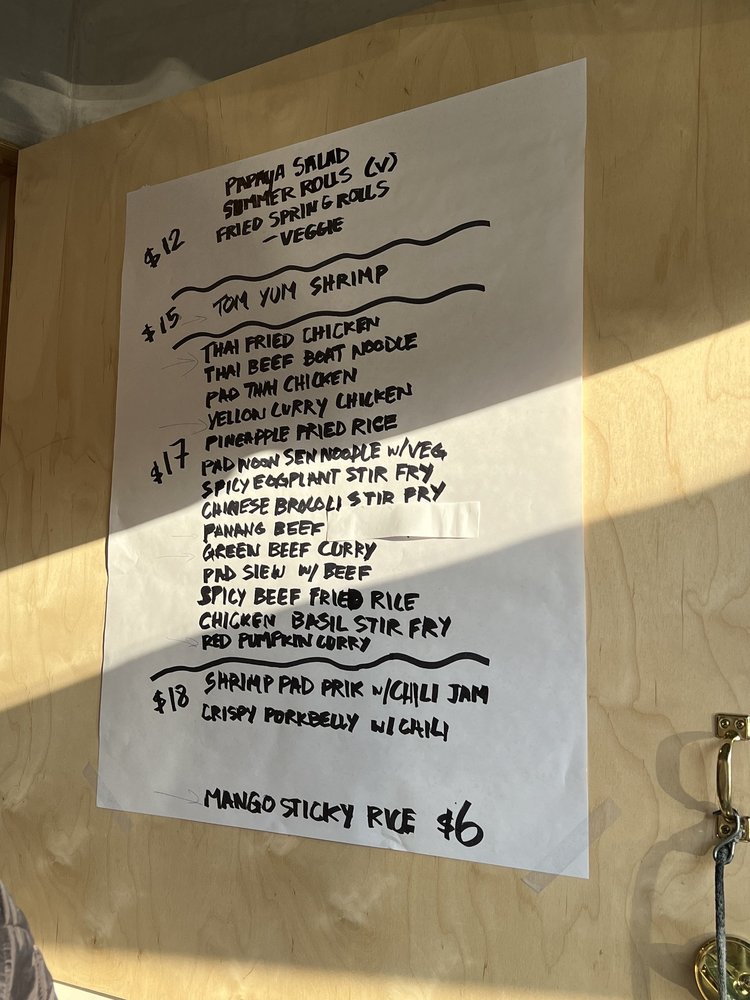 PAPAYA SALAD
SUMMER ROLLS (V)
FRIED SPRING ROLLS
- VEGGIE
$12
TOM YUM SHRIMP
$15
THAI FRIED CHICKEN
THAI BEEF BOAT NOODLE
PAD THAI CHICKEN
YELLOW CURRY CHICKEN
PINEAPPLE FRIED RICE
$17
PAD NOON SEN NOODLE w/VEG
SPICY EGGPLANT STIR FRY
CHINESE BROCOLI STIR FRY
PANANG BEEF
GREEN BEEF CURRY
PAD SIEW W/ BEEF
SPICY BEEF FRIED RICE
CHICKEN BASIL STIR FRY
RED PUMPKIN CURRY
$18 SHRIMP PAD PRIK w/CHILI JAM
CRISPY PORKBELLY w/ CHILI
MANGO STICKY RICE $6